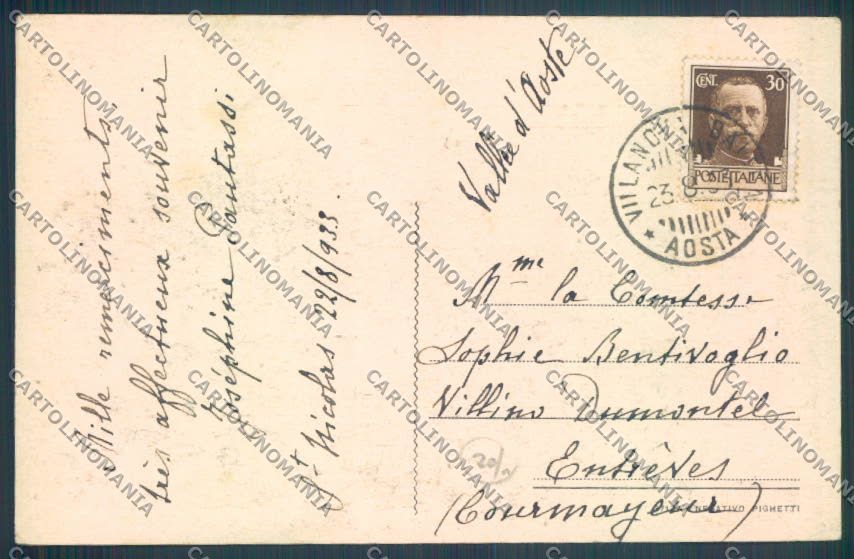 Mille remerciments,
très affectueux souvenir
Joséphine Pautassi
St Nicolas 22/8/933.
Vallée d'Aoste
CENT. 30
POSTE ITALIANE
23.8.
* AOSTA
Mme la Comtesse
Sophie Bentivoglio
Villino Dumontel
Entrèves
(Courmayeur)
NEGATIVO PIGHETTI
CARTOLINOMANIA